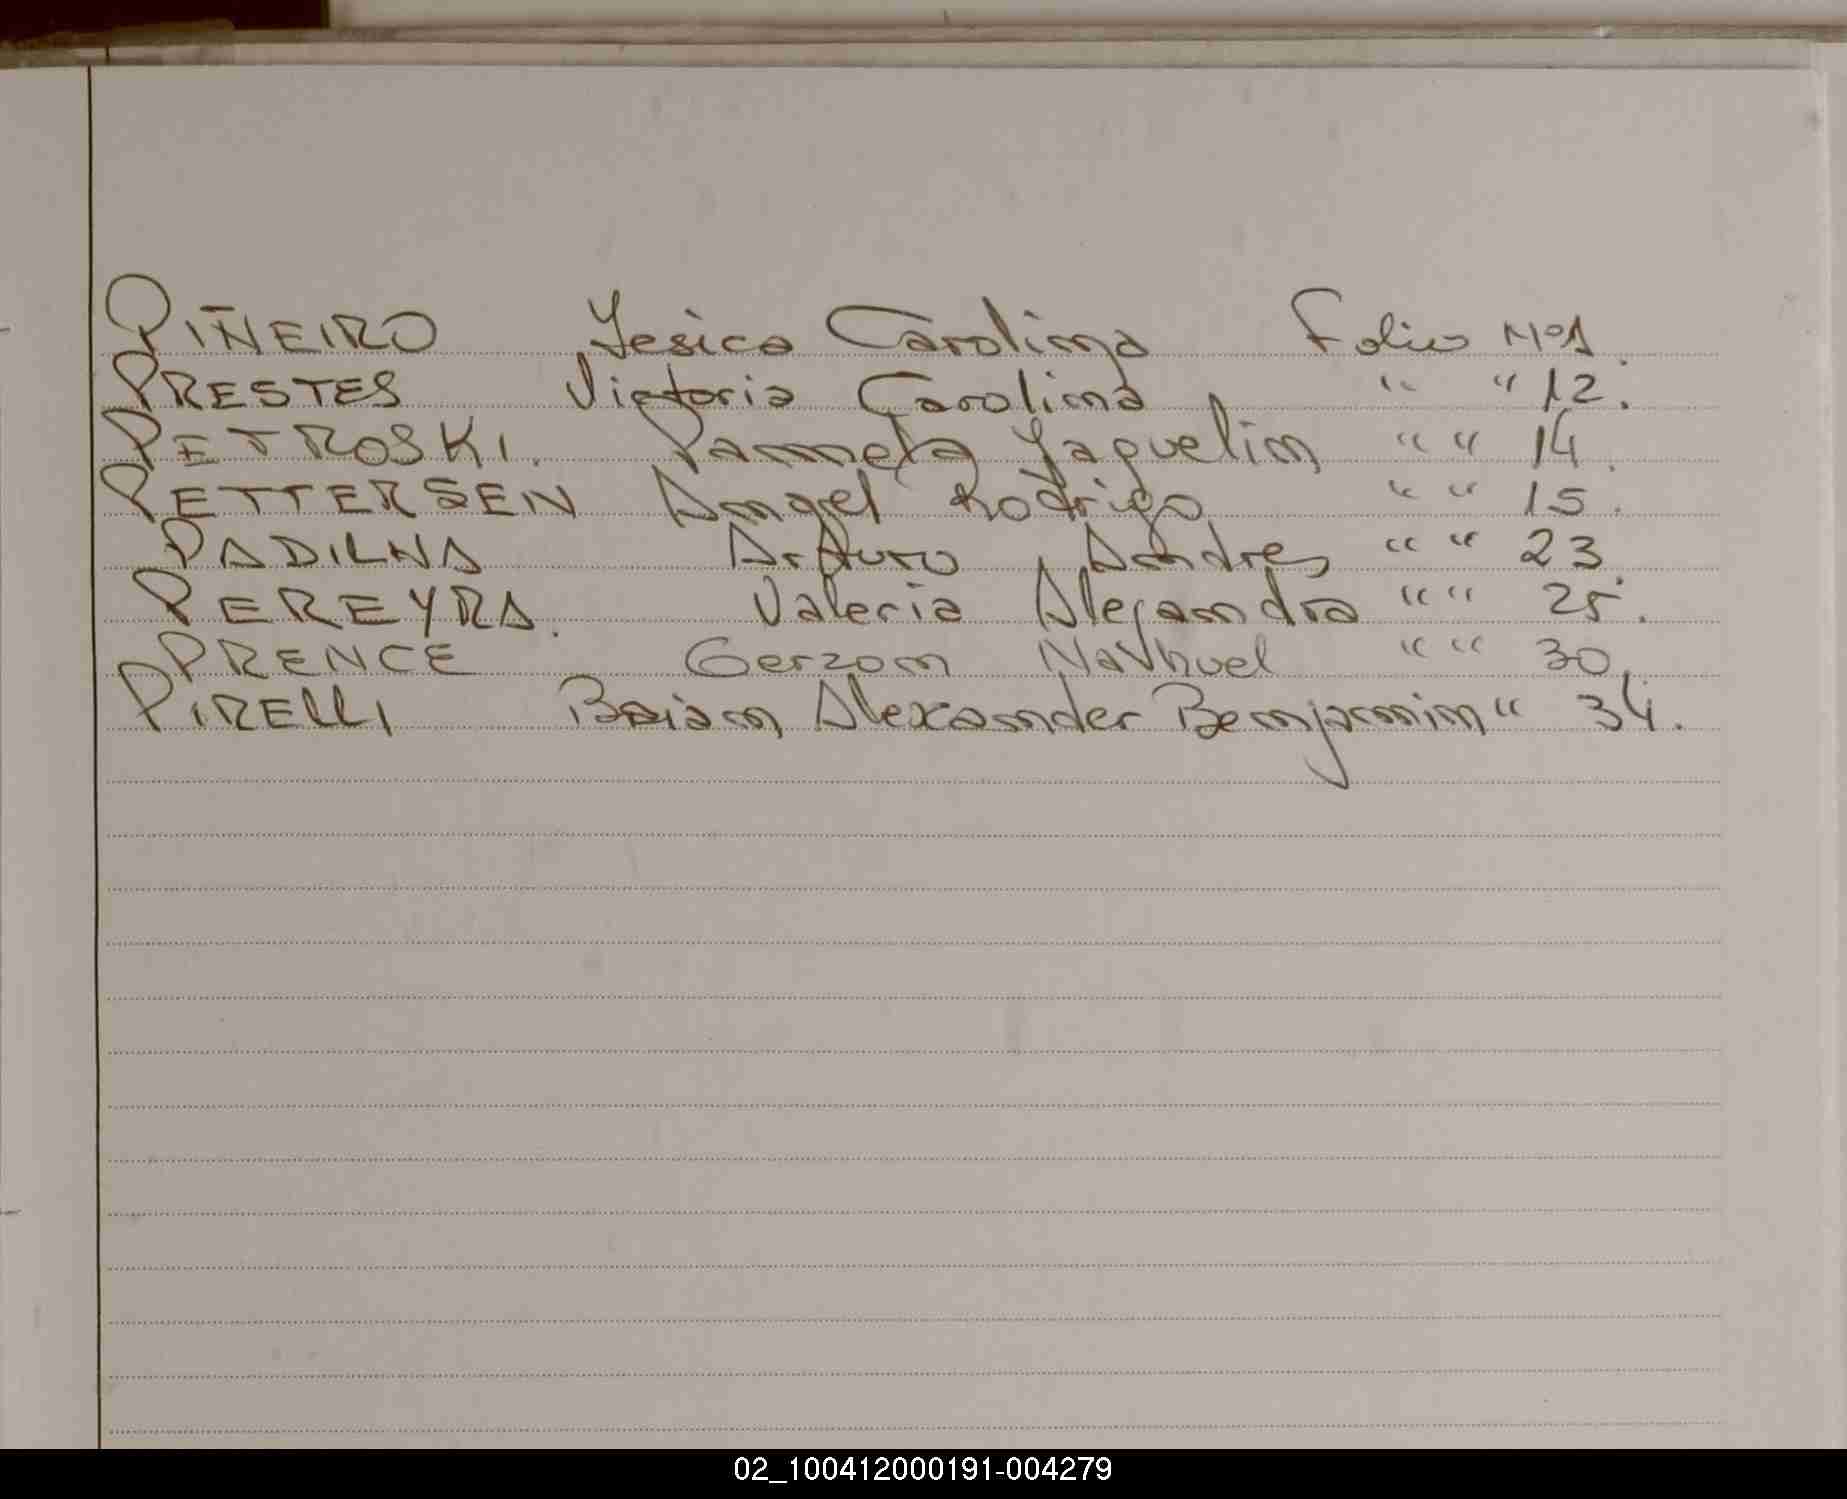 PIÑEIRO Yesica Carolina Folio Nº1.
PRESTES Victoria Carolina " " 12.
PETROSKI. Pamela Yaquelin " " 14.
PETTERSEN Angel Rodrigo " " 15.
PADILHA Arturo Andres " " 23.
PEREYRA. Valeria Alejandra " " 25.
PRENCE Gerzon Nahuel " " 30.
PIRELLI Braian Alexander Benjamin " 34.
02_100412000191-004279